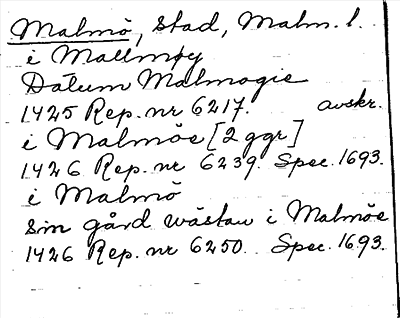 Malmö, stad, Malm. l.
i Mallmøy
Datum Malmogie
1425 Rep. nr 6217. avskr.
i Malmöe [2 ggr]
1426 Rep. nr 6239. Spec. 1693.
i Malmö
sin gård wæstan i Malmöe
1426 Rep. nr 6250. Spec. 1693.